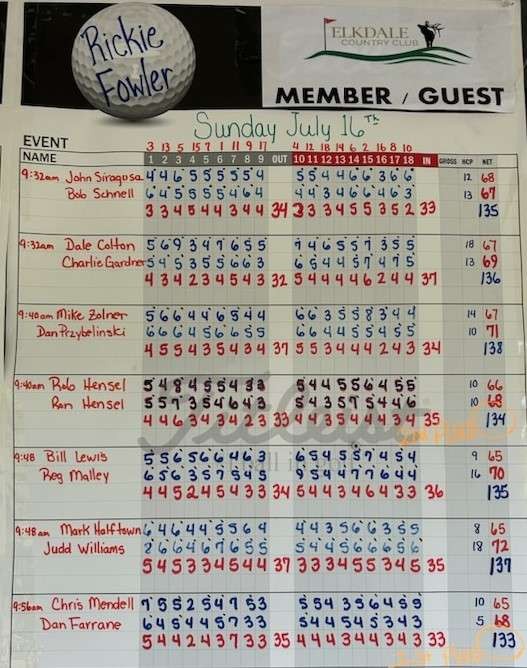 Rickie
Fowler
ELKDALE
COUNTRY CLUB
MEMBER / GUEST
Sunday July 16th
EVENT 3 13 5 15 7 1 11 9 17 4 12 18 14 6 2 16 8 10
NAME 1 2 3 4 5 6 7 8 9 OUT 10 11 12 13 14 15 16 17 18 IN GROSS HCP NET
9:32am John Siragusa 4 4 6 5 5 5 5 5 4 5 5 4 4 6 6 3 6 6 12 68
Bob Schnell 6 4 5 5 5 5 4 6 4 4 4 3 4 6 4 6 3 67
13 67
3 3 4 5 4 4 3 4 4 34 2 3 3 4 5 5 3 5 2 33 135
9:32am Dale Colton 5 6 9 3 4 7 6 5 5 7 4 6 5 5 7 3 5 5 18 67
Charlie Gardner 5 4 5 3 5 5 6 6 3 6 5 4 4 5 7 4 7 5 13 69
4 3 4 2 3 4 5 4 3 32 5 4 4 4 6 2 4 4 37 136
9:40am Mike Zolner 5 6 6 4 4 6 5 4 4 6 6 3 5 5 8 3 4 4 14 67
Dan Przybelinski 6 6 6 4 5 6 6 5 5 6 6 4 4 5 5 4 5 5 10 71
4 5 5 4 3 5 4 3 4 37 5 5 3 4 4 4 2 4 3 34 138
9:40am Rob Hensel 5 4 8 4 5 5 4 3 3 5 4 4 5 5 6 4 5 5 10 66
Ron Hensel 5 5 7 3 5 4 6 4 3 5 4 3 5 7 5 4 4 6 10 68
4 4 6 3 4 4 3 2 3 33 4 3 5 4 4 4 3 4 35 134
9:48 Bill Lewis 5 5 6 5 6 6 4 6 3 6 5 4 5 5 7 4 5 4 9 65
Reg Malley 6 5 6 3 5 7 5 4 5 9 5 4 4 7 7 6 4 4 16 70
4 4 5 2 4 5 4 3 3 34 5 4 4 3 4 6 4 3 3 36 135
9:48am Mark Halftown 6 4 6 4 4 5 5 6 4 4 4 3 5 6 6 3 5 5 8 65
Judd Williams 8 6 6 4 6 7 6 5 5 5 4 4 5 6 6 6 5 6 18 72
5 4 5 3 3 5 4 4 4 37 3 3 3 4 5 5 3 4 5 35 137
9:56am Chris Mendell 7 5 5 2 5 4 7 5 3 5 5 4 3 5 6 4 5 5 10 65
Dan Farrane 6 4 5 4 4 5 7 3 3 5 4 4 5 4 5 3 4 3 5 68
5 4 4 2 4 3 7 3 3 35 4 4 4 3 4 4 3 4 3 33 133